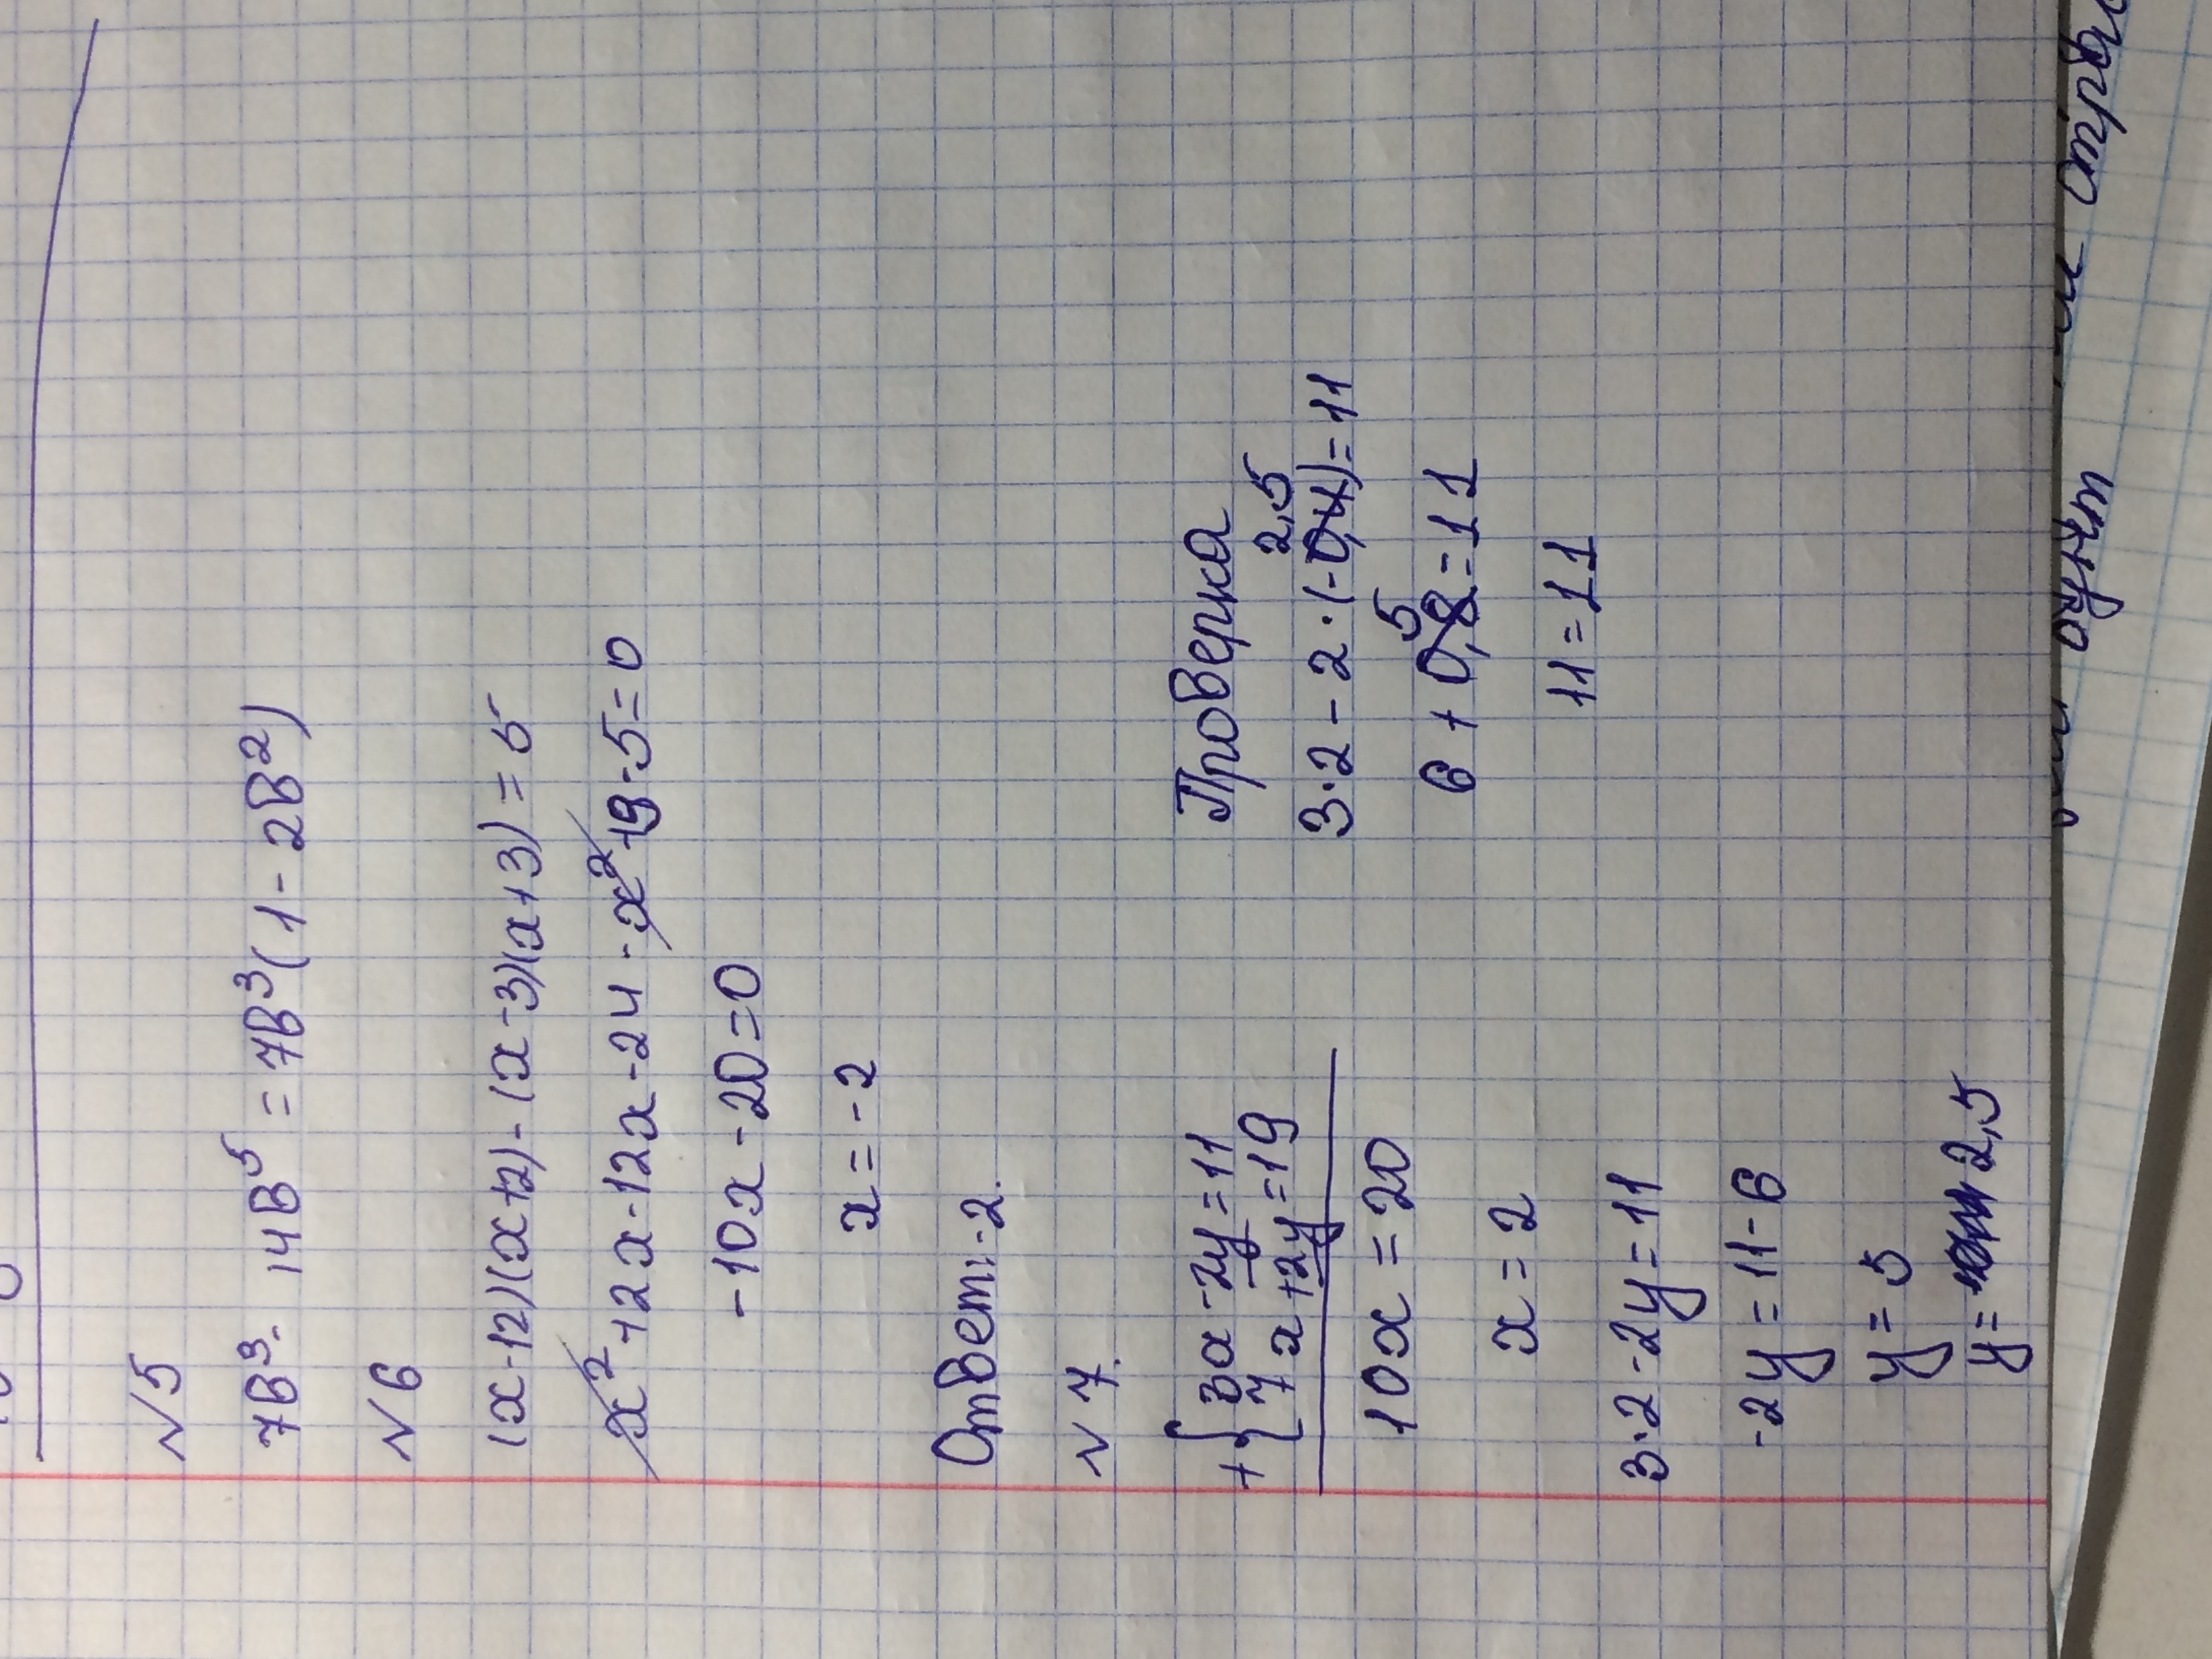 №5
7В³- 14В⁵ = 7В³(1-2В²)
№6
(x-12)(x+2)-(x-3)(x+3)=5
x²+2x-12x-24-x²+9-5=0
-10x-20=0
x=-2
Ответ:-2.
№7.
+{3x-2y=11
7x+2y=19
10x=20
x=2
3·2-2y=11
-2y=11-6
y=5
y= 2,5
Проверка
2,5
3·2-2·(-0,4)=11
5
6+0,8=11
11=11
будет
отра